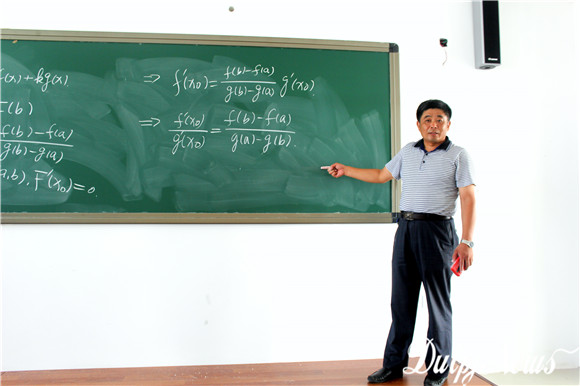 f(x)+kg(x)
F(b)
f(b)-f(a)
g(b)-g(a)
a,b), F'(x₀)=0.
⇒ f'(x₀) = f(b)-f(a) / g(b)-g(a) g'(x₀)
⇒ f'(x₀) / g'(x₀) = f(b)-f(a) / g(a)-g(b).